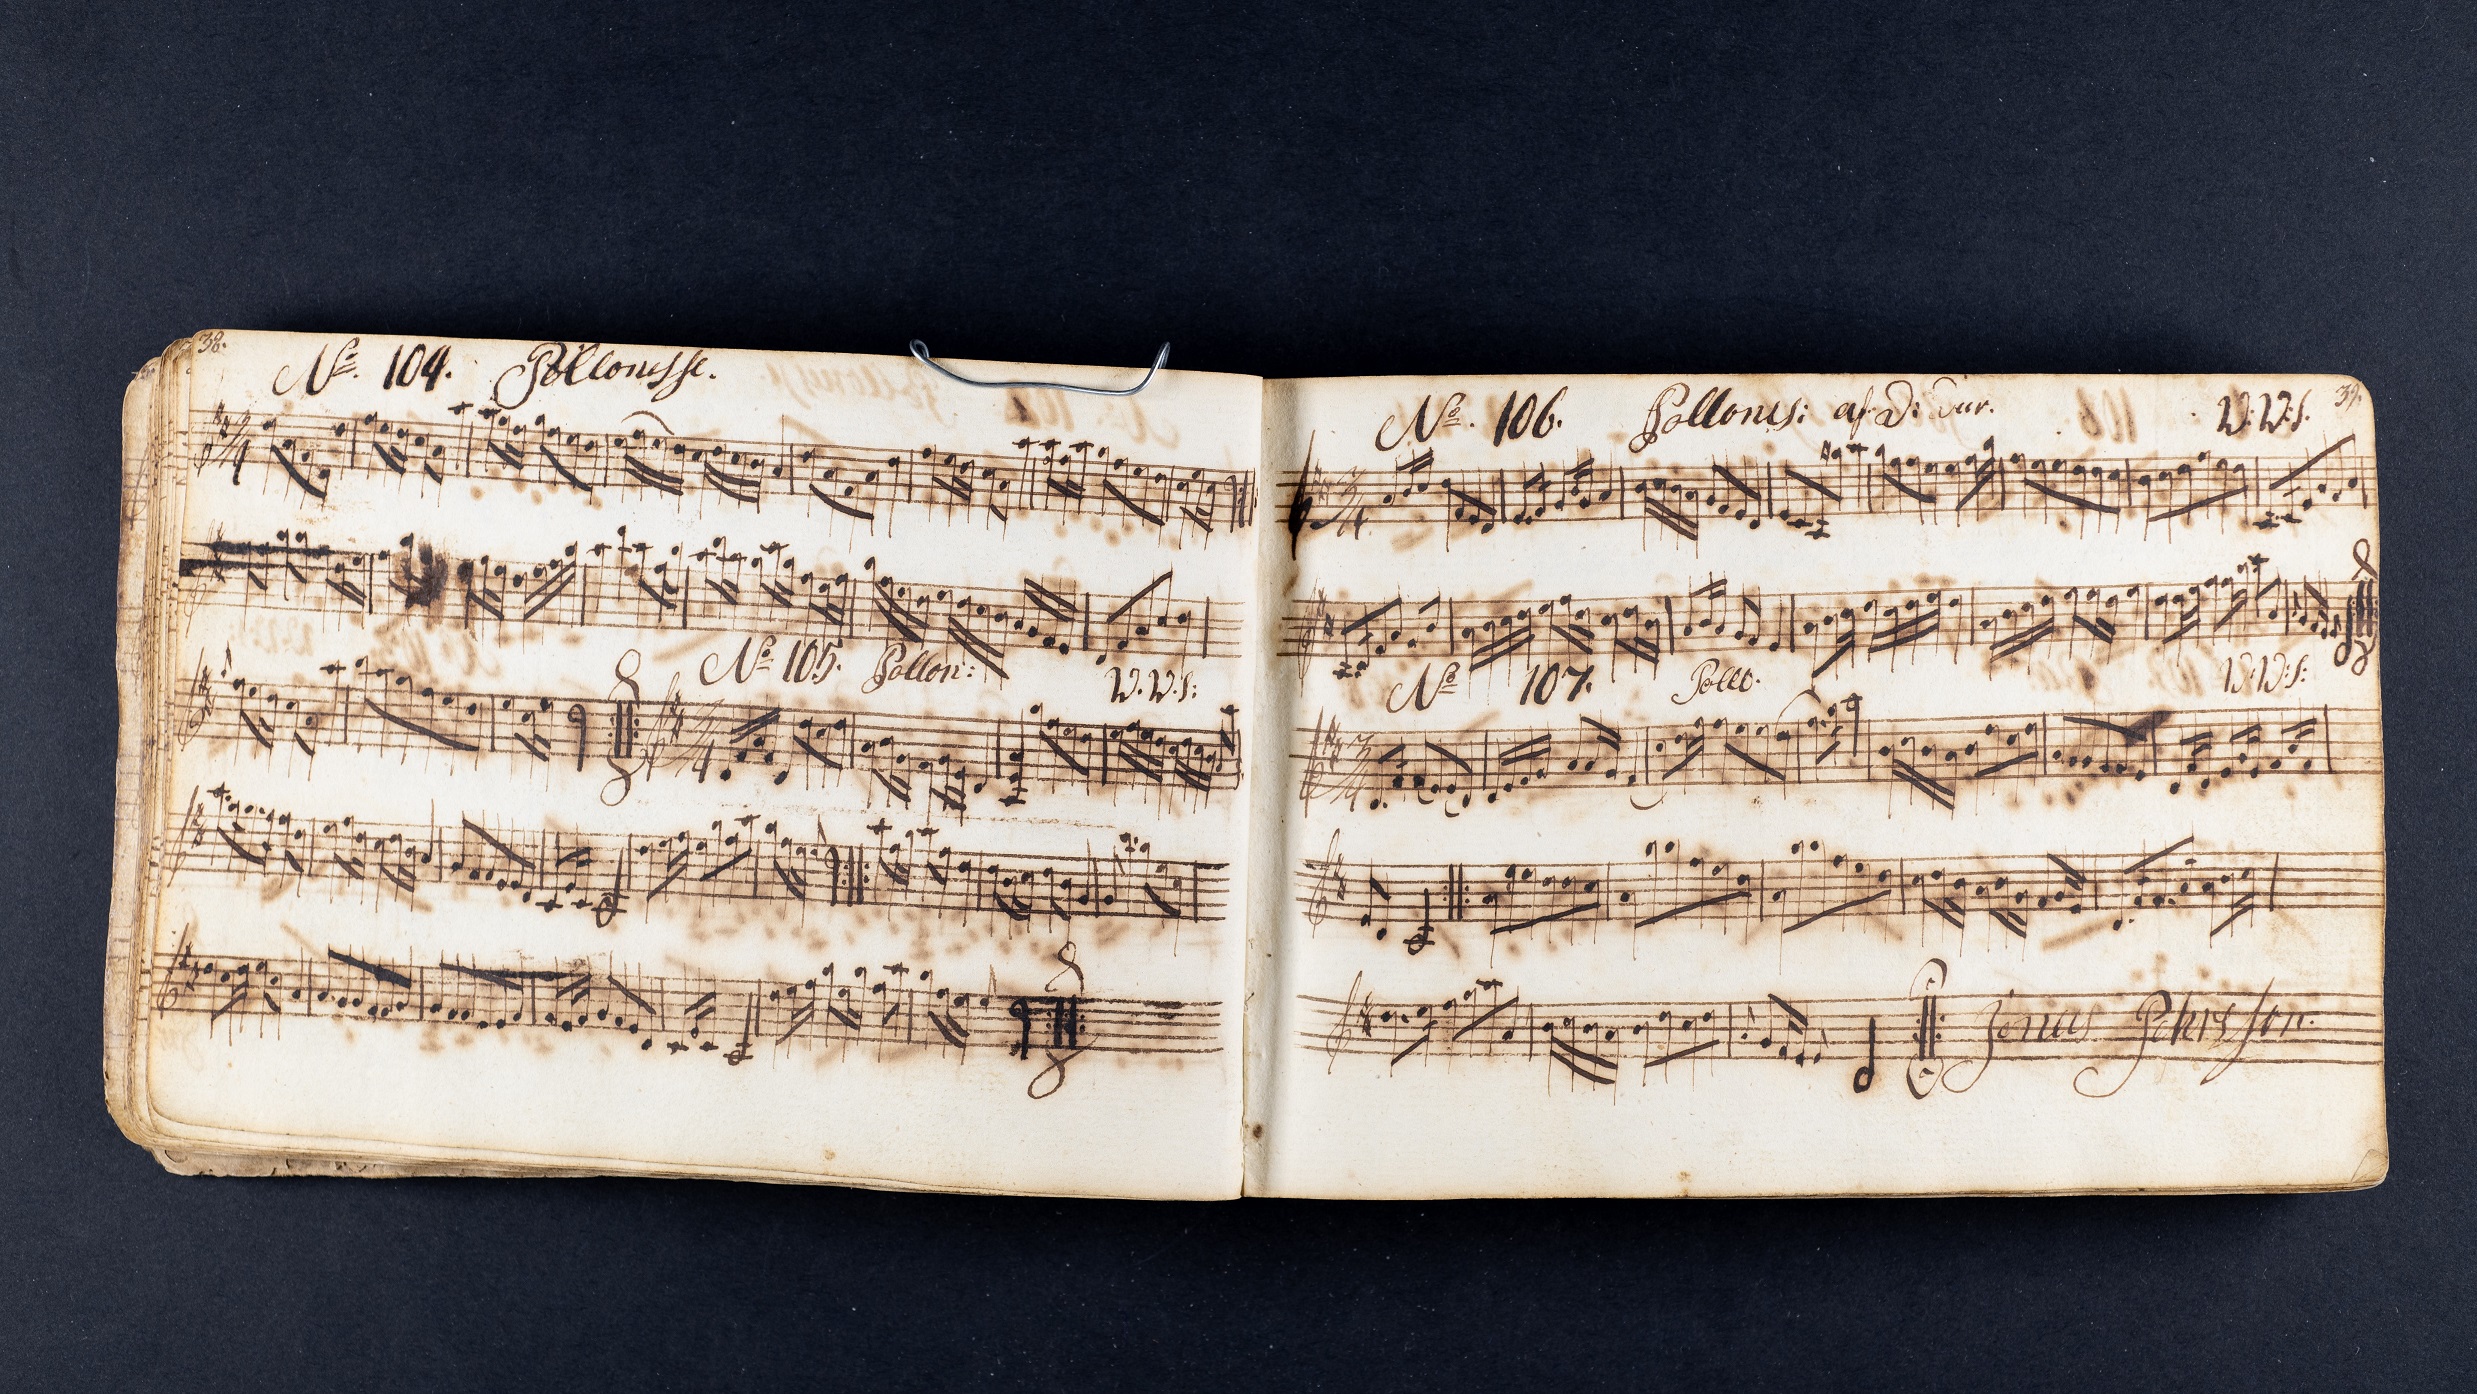 38.
No. 104. Pollonesse.
3/4
No 105. Pollon: W.W.s:
3/4
39.
No. 106. Pollones: af D: dur. W.W.s.
3/4
No 107. Pollo. W:W:s:
3/4
Jonas Pehrsson.